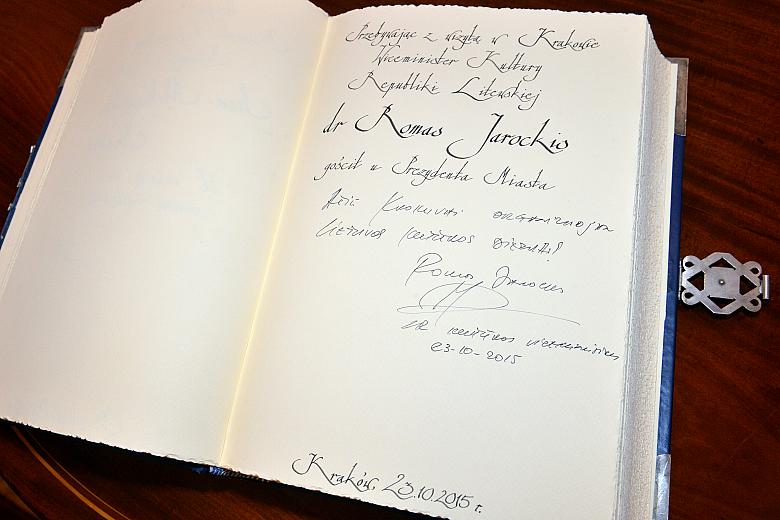 Przebywając z wizytą w Krakowie
Wiceminister Kultury
Republiki Litewskiej
dr Romas Jarockis
gościł u Prezydenta Miasta
Ačiū Krokuvai
Lietuvos kultūros
Romas Jarockis
LR kultūros viceministras
23-10-2015
Kraków, 23.10.2015 r.